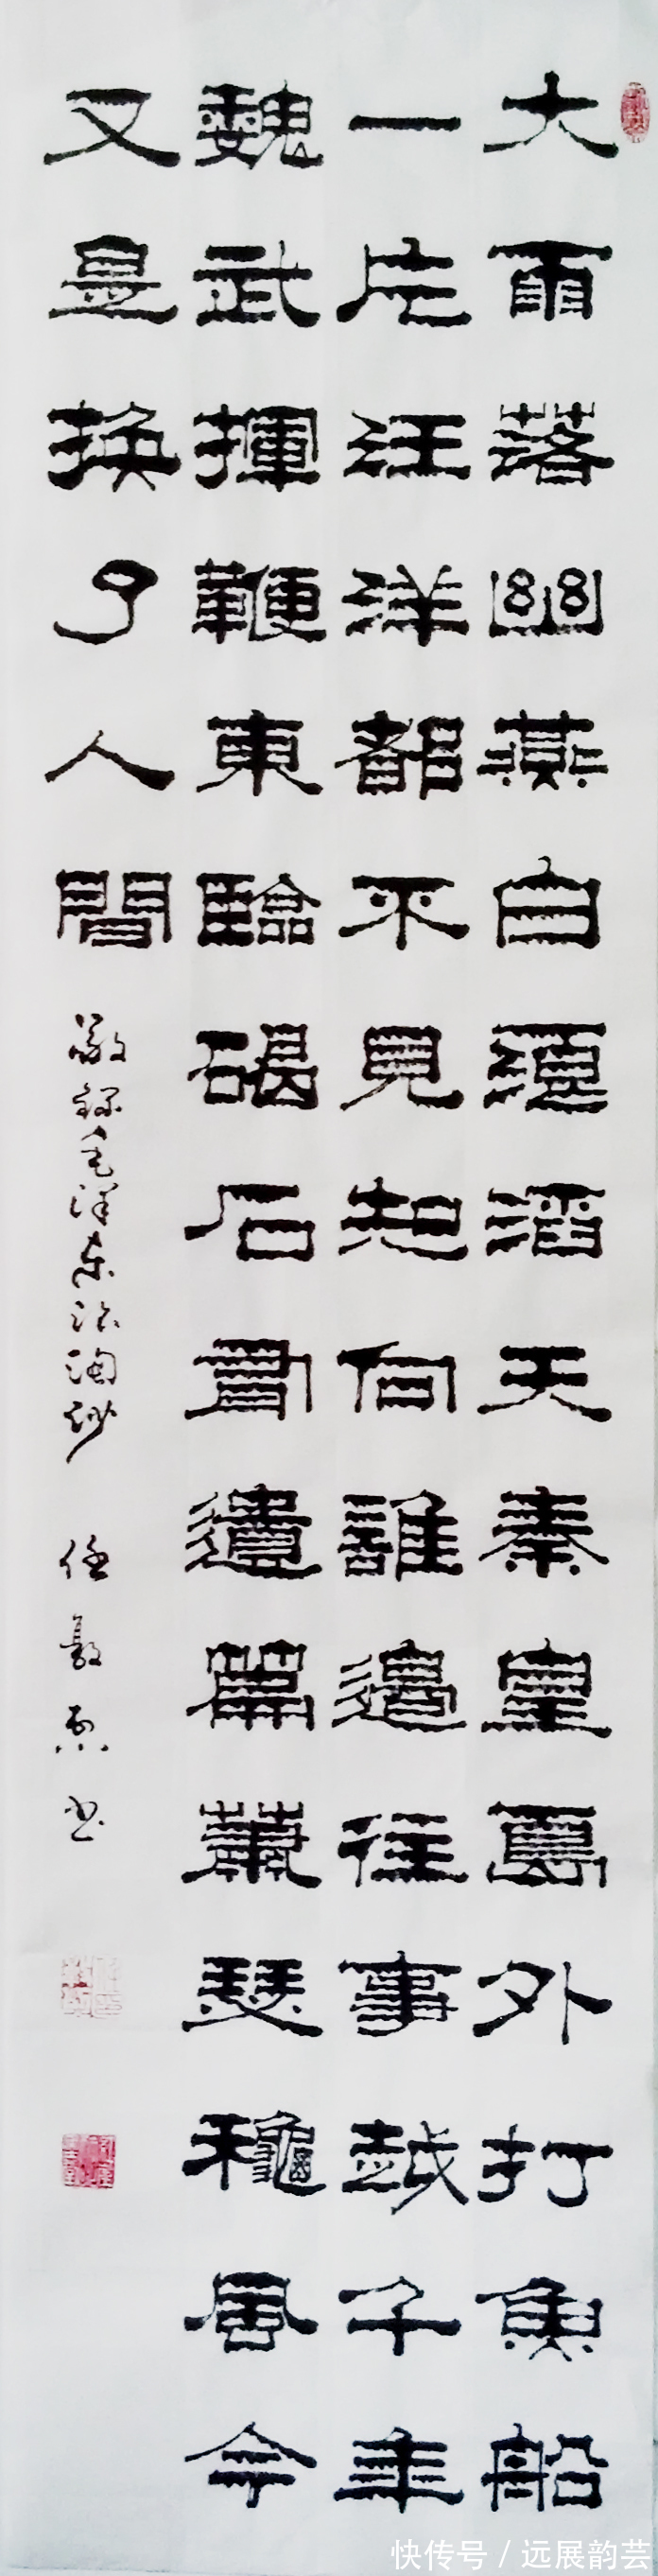 大雨落幽燕白浪滔天秦皇島外打魚船
一片汪洋都不見知向誰邊往事越千年
魏武揮鞭東臨碣石有遺篇蕭瑟龝風今
又是換了人間
敬錄毛澤東浪淘沙 任 书
快传号 / 远展韵芸